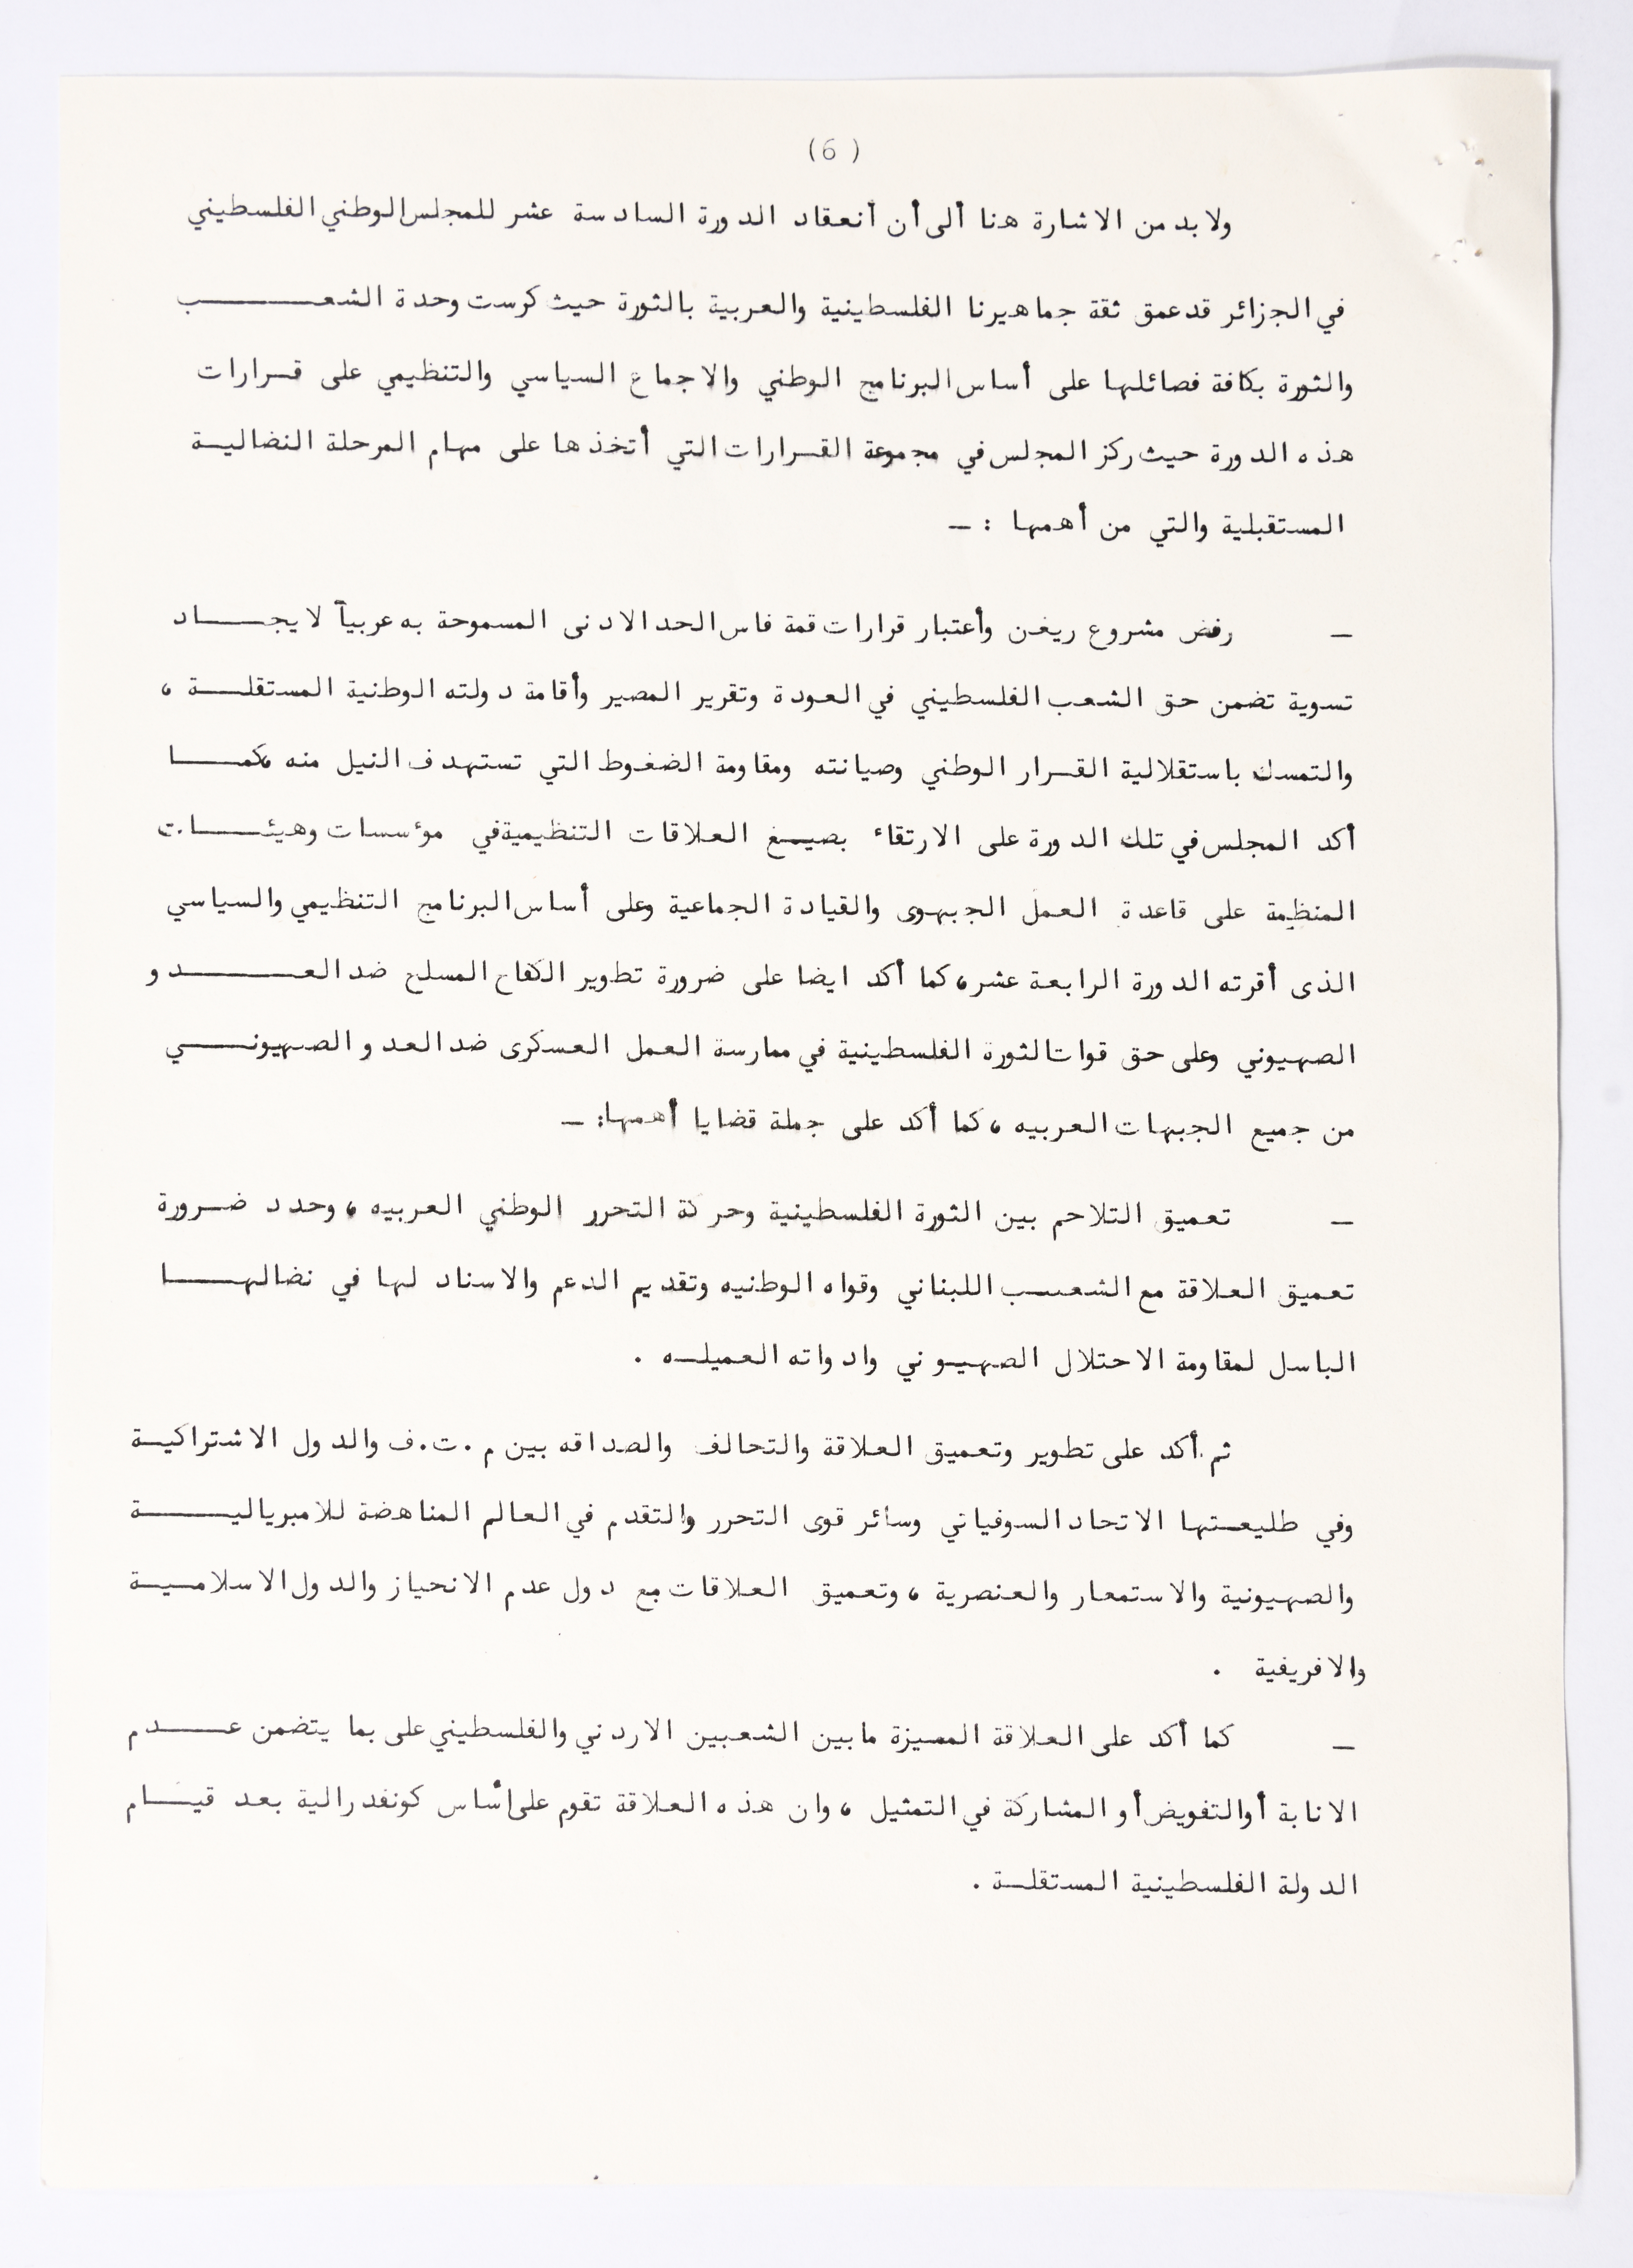 (6)
ولا بد من الاشارة هنا ألى أن أنعقاد الدورة السادسة عشر للمجلس الوطني الفلسطيني
في الجزائر قد عمق ثقة جماهيرنا الفلسطينية والعربية بالثورة حيث كرست وحدة الشعـــــب
والثورة بكافة فصائلها على أساس البرنامج الوطني والاجماع السياسي والتنظيمي على قـرارات
هذه الدورة حيث ركز المجلس في مجموعة القـرارات التي أتخذها على مهام المرحلة النضاليـة
المستقبلية والتي من أهمها : ـ
ـ رفض مشروع ريغن وأعتبار قرارات قمة فاس الحد الادنى المسموحة به عربياً لايجـــاد
تسوية تضمن حق الشعب الفلسطيني في العودة وتقرير المصير وأقامة دولته الوطنية المستقلـــة ،
والتمسك باستقلالية القـرار الوطني وصيانته ومقاومة الضغوط التي تستهدف النيل منه ،كمـــا
أكد المجلس في تلك الدورة على الارتقاء بصيـغ العلاقات التنظيمية في موءسسات وهيئـــات
المنظمة على قاعدة العمل الجبهوى والقيادة الجماعية وعلى أساس البرنامج التنظيمي والسياسي
الذى أقرته الدورة الرابعة عشر ،كما أكد ايضا على ضرورة تطوير الكفاح المسلح ضد العـــــدو
الصهيوني وعلى حق قوات الثورة الفلسطينية في ممارسة العمل العسكرى ضد العدو الصهيونـــي
من جميع الجبهات العربيه ، كما أكد على جملة قضايا أهمها: ـ
ـ تعميق التلاحم بين الثورة الفلسطينية وحركة التحرر الوطني العربيه ، وحدد ضـرورة
تعميق العلاقة مع الشعـب اللبناني وقواه الوطنيه وتقديم الدعم والاسناد لها في نضالهـــا
الباسل لمقاومة الاحتلال الصهيوني وادواته العميلـه .
ثم أكد على تطوير وتعميق العلاقة والتحالف والصداقه بين م.ت.ف والدول الاشتراكيـة
وفي طليعـتها الاتحاد السوفياتي وسائر قوى التحرر والتقدم في العالم المناهضة للامبرياليـــة
والصهيونية والاستمعار والعنصرية ، وتعميق العلاقات مع دول عدم الانحياز والدول الاسلاميـة
والافريفية .
ـ كما أكد على العلاقة المميزة مابين الشعبين الاردني والفلسطيني على بما يتضمن عـــدم
الانابة أوالتفويض أو المشاركة في التمثيل ، وان هذه العلاقة تقوم على أساس كونفدرالية بعد قيـــام
الدولة الفلسطينية المستقلـة .